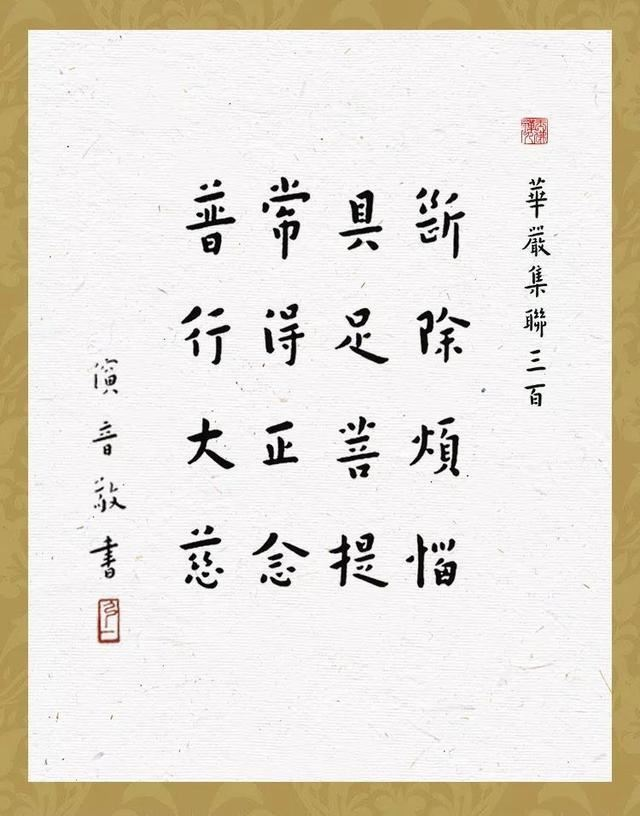 華嚴集聯三百
斷除煩惱
具足菩提
常得正念
普行大慈
演音敬書
弘一